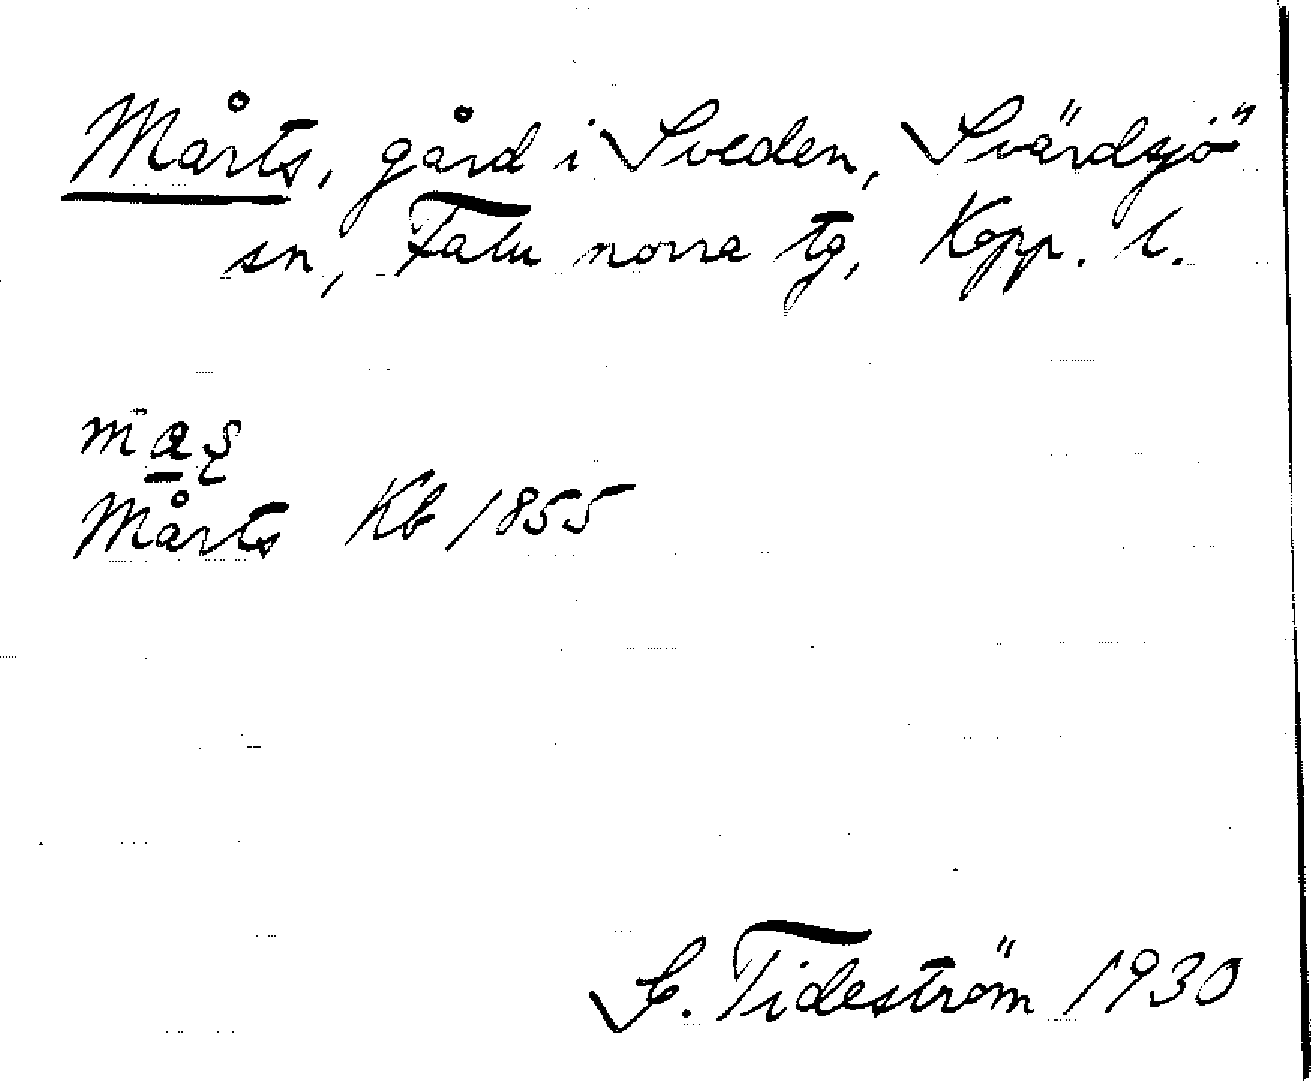 Mårts, gård i Sveden, Svärdsjö
sn, Falu norra tg, Kopp. l.
Mårts Kb 1855
S. Tideström 1930